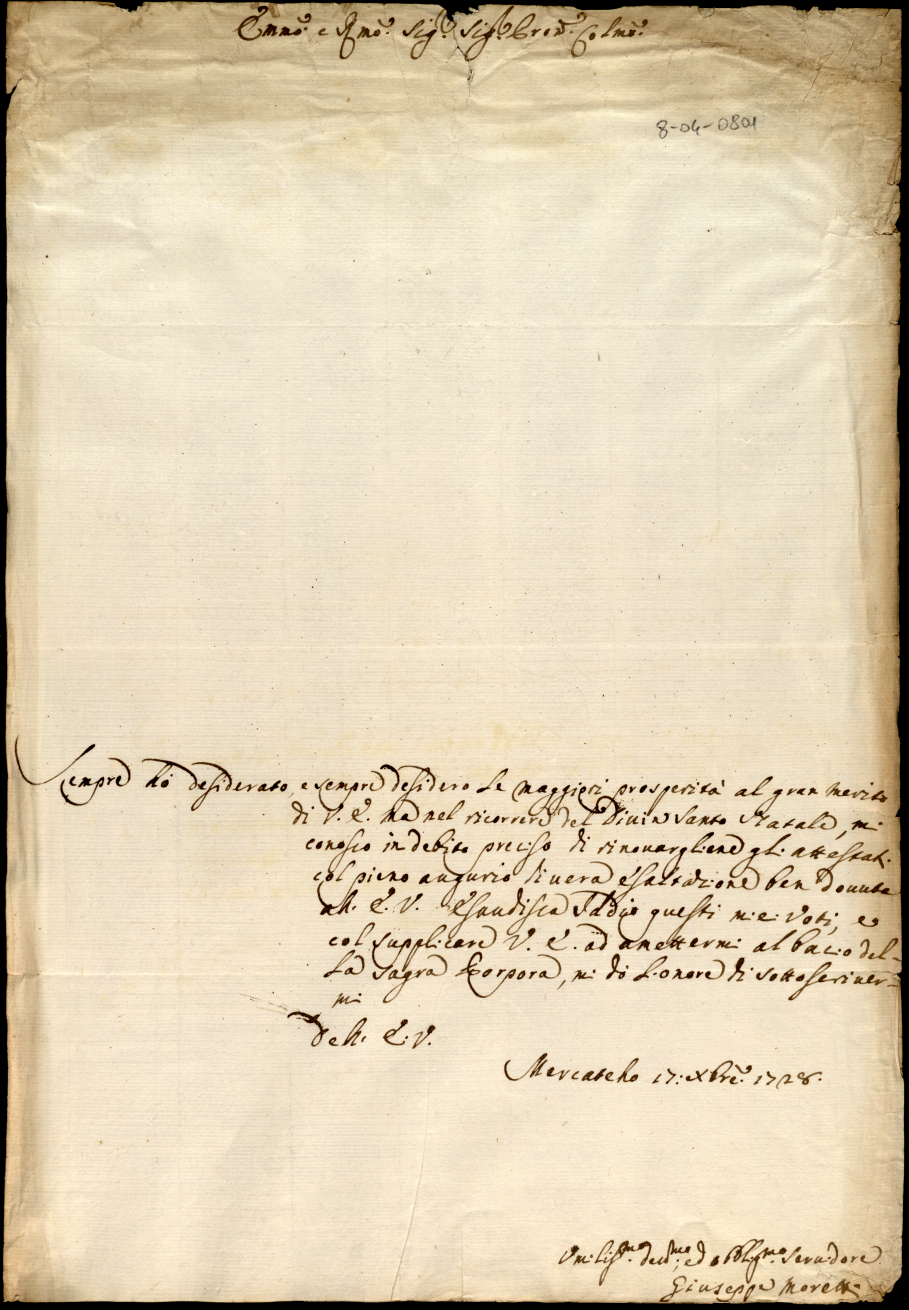 Emmo: e Rmo: Sig:r Sig:r Pron: Colmo:
8-04-0801
Sempre hò desiderato, e sempre desidero le maggiori prosperità al gran merito
di V. E. ma nel ricorrere del Divin Santo Natale, mi
conosco in debito preciso di rinouargliene gli attestati
col pieno augurio di uera esaltazione ben douuta
all. E. V. Esaudisca Iddio questi miei Voti, e
col supplicare V. E. ad amettermi al bacio del-
la Sagra Porpora, mi dò l'onore di sottoscriuer-
mi
Dell. E. V.
Mercatello 17: Xbre: 1728.
Umiliss:mo deu:mo, ed obblig:mo Seruidore
Giuseppe Moretti